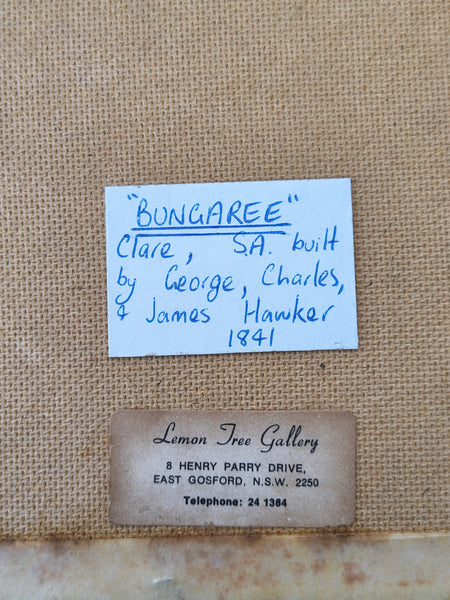 "BUNGAREE"
Clare, S.A. built
by George, Charles,
& James Hawker
1841
Lemon Tree Gallery
8 HENRY PARRY DRIVE,
EAST GOSFORD, N.S.W. 2250
Telephone: 24 1364